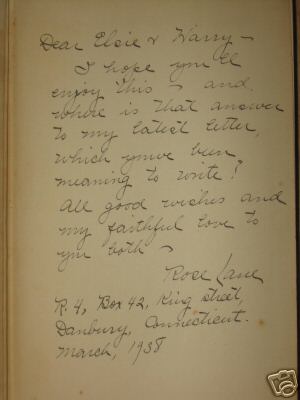 Dear Elsie & Harry —
I hope you'll
enjoy this — and
where is that answer
to my latest letter,
which you've been
meaning to write?
All good wishes and
my faithful love to
you both —
Rose Lane
R.4, Box 42, King Street,
Danbury, Connecticut.
March, 1938
ebY